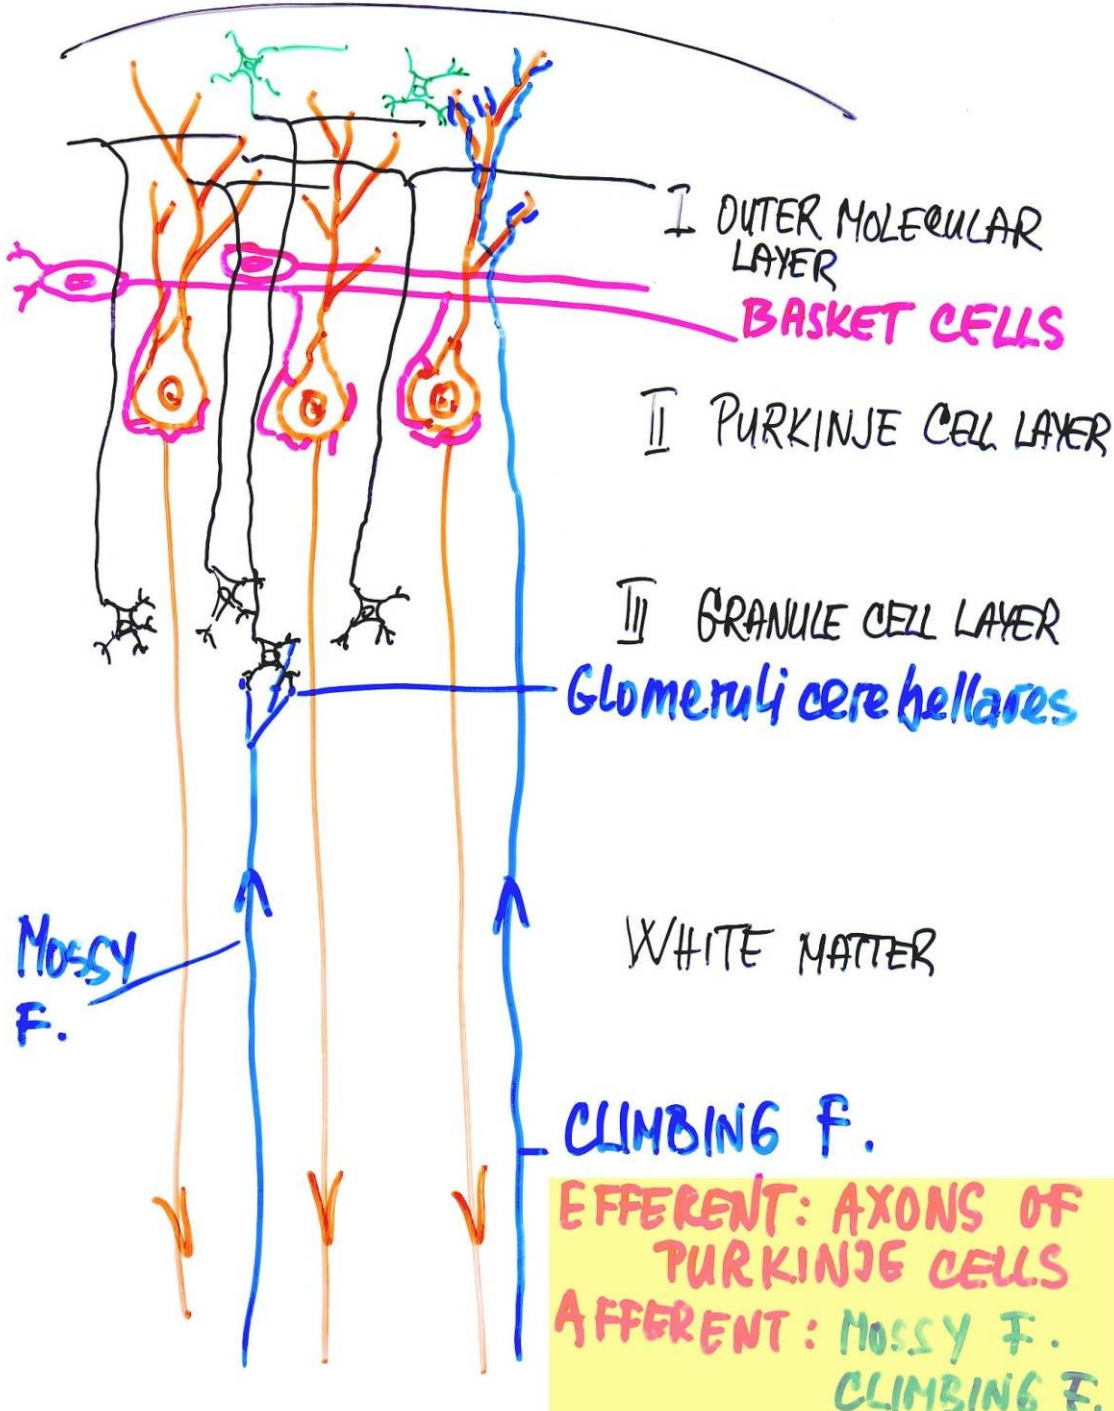 I OUTER MOLECULAR
LAYER
BASKET CELLS
II PURKINJE CELL LAYER
III GRANULE CELL LAYER
Glomeruli cerebellares
MOSSY
F.
WHITE MATTER
CLIMBING F.
EFFERENT: AXONS OF
PURKINJE CELLS
AFFERENT: MOSSY F.
CLIMBING F.